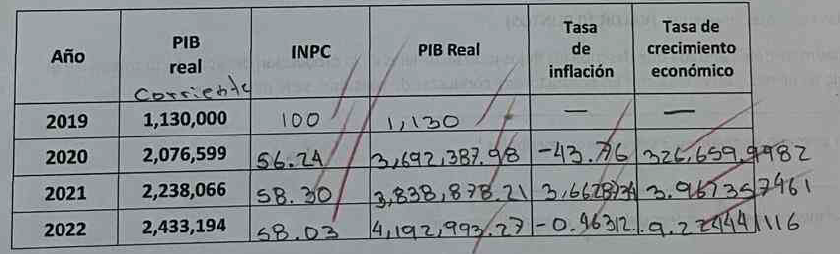 Año PIB real Corriente INPC PIB Real Tasa de inflación Tasa de crecimiento económico
2019 1,130,000 100 1,130 — —
2020 2,076,599 56.24 3,692,387.98 -43.76 326,659.9982
2021 2,238,066 58.30 3,838,878.21 3.6628734 3.967357461
2022 2,433,194 58.03 4,192,993.27 -0.46312 9.224441116